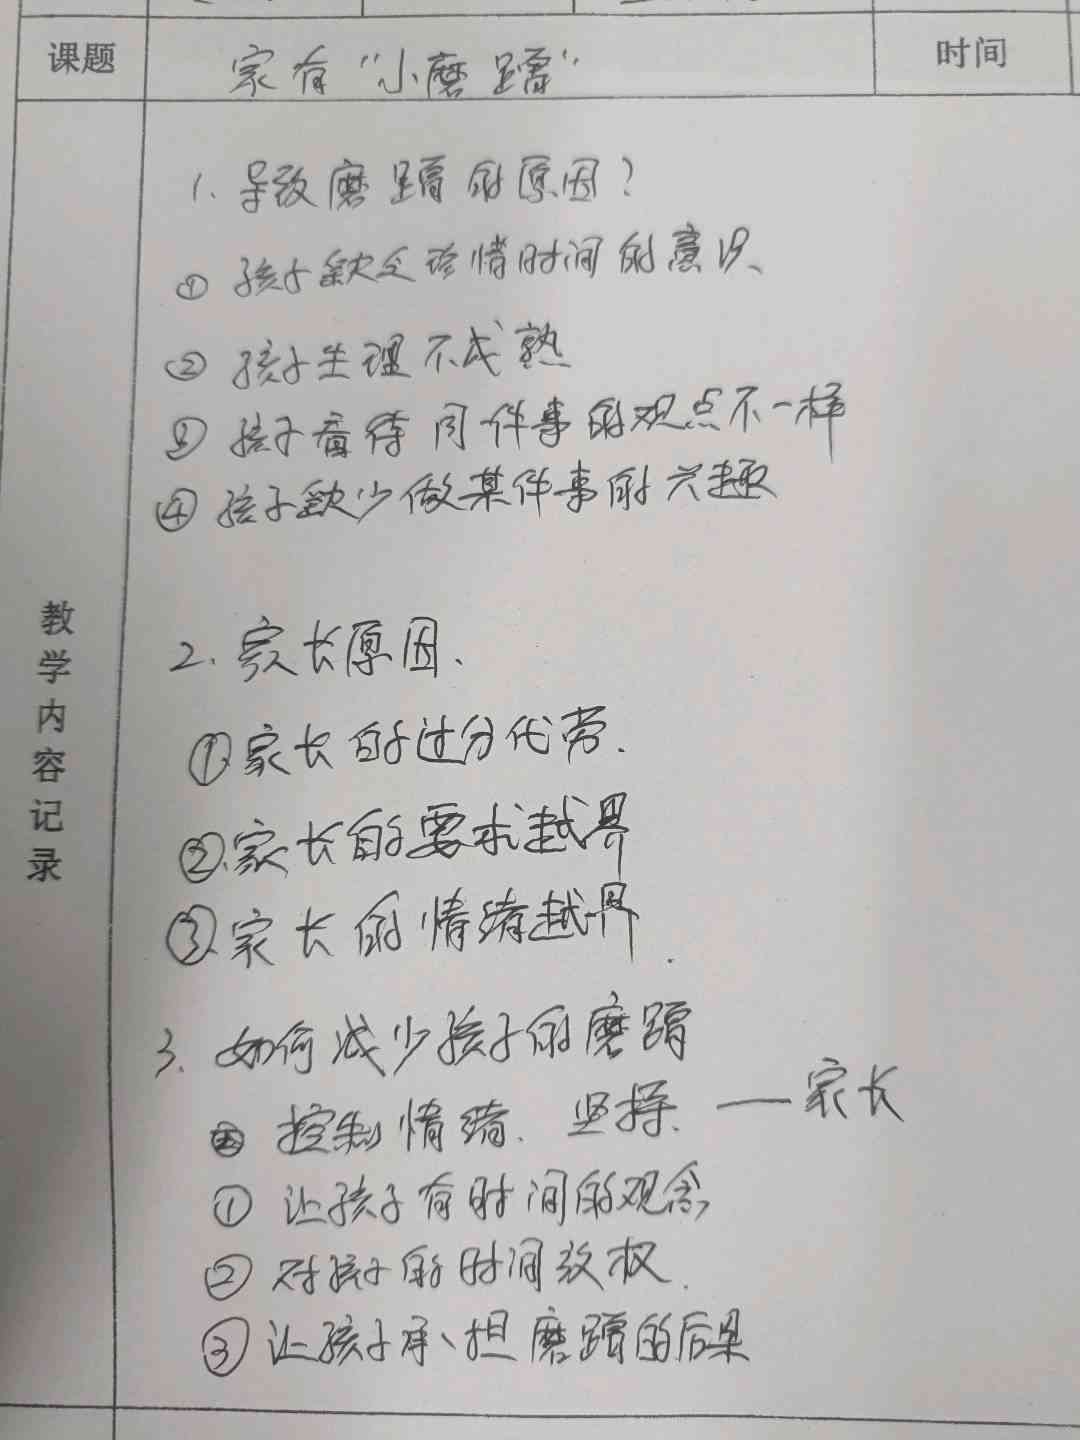 课题 家有“小磨蹭” 时间
1、导致磨蹭的原因？
① 孩子缺乏珍惜时间的意识、
② 孩子生理不成熟
③ 孩子看待同件事的观点不一样
④ 孩子缺少做某件事的兴趣
2、家长原因、
①家长的过分代劳.
②.家长的要求越界
③.家长的情绪越界.
3、如何减少孩子的磨蹭
控制情绪、坚持、——家长
① 让孩子有时间的观念
② 对孩子的时间放权.
③ 让孩子承担磨蹭的后果
教学内容记录